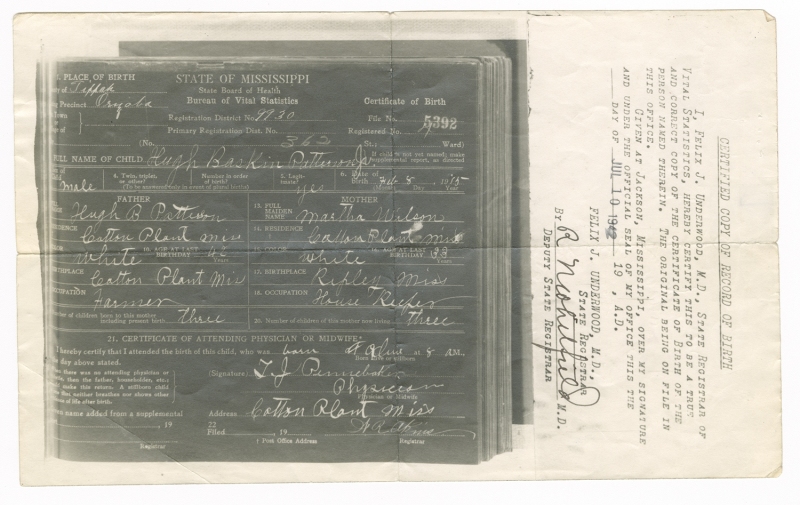 1. PLACE OF BIRTH
STATE OF MISSISSIPPI
State Board of Health
Bureau of Vital Statistics
Certificate of Birth
of Tippah
Precinct
Town
Registration District No. 9930
File No. 5392
Primary Registration Dist. No.
Registered No.
(No. 362 St., Ward)
FULL NAME OF CHILD Hugh Baskin
If child is not yet named, make
supplemental report, as directed
4. Twin, triplet, or other?
Number in order of birth?
5. Legitimate?
6. Date of Birth
male
yes
Feb 8, 1915
(To be answered only in event of plural births)
Day Year
FATHER
MOTHER
Hugh B
13. FULL MAIDEN NAME
Martha Wilson
RESIDENCE
Cotton Plant Miss
14. RESIDENCE
Cotton Plant Miss
White
10. AGE AT LAST BIRTHDAY
Years
15. COLOR
White
16. AGE AT LAST BIRTHDAY 33
Years
BIRTHPLACE
Cotton Plant Mis
17. BIRTHPLACE
Ripley Mis
OCCUPATION
Farmer
18. OCCUPATION
House Keeper
Number of children born to this mother including present birth three
20. Number of children of this mother now living three
21. CERTIFICATE OF ATTENDING PHYSICIAN OR MIDWIFE*
I hereby certify that I attended the birth of this child, who was born Alive at 8 AM.,
day above stated.
Born alive or stillborn
there was no attending physician or
then the father, householder, etc.,
make this return. A stillborn child
that neither breathes nor shows other
of life after birth.
(Signature) T. J. Pennebaker
Physician
Physician or Midwife
name added from a supplemental
Address Cotton Plant Miss
, 19
22
Filed , 19
Registrar
† Post Office Address
Registrar
CERTIFIED COPY OF RECORD OF BIRTH
I, FELIX J. UNDERWOOD, M.D., STATE REGISTRAR OF
VITAL STATISTICS, HEREBY CERTIFY THIS TO BE A TRUE
AND CORRECT COPY OF THE CERTIFICATE OF BIRTH OF THE
PERSON NAMED THEREIN. THE ORIGINAL BEING ON FILE IN
THIS OFFICE.
GIVEN AT JACKSON, MISSISSIPPI, OVER MY SIGNATURE
AND UNDER THE OFFICIAL SEAL OF MY OFFICE THIS THE
DAY OF JUL 10 1942 19 , A.D.
FELIX J. UNDERWOOD, M.D.,
STATE REGISTRAR
BY M.D.
DEPUTY STATE REGISTRAR